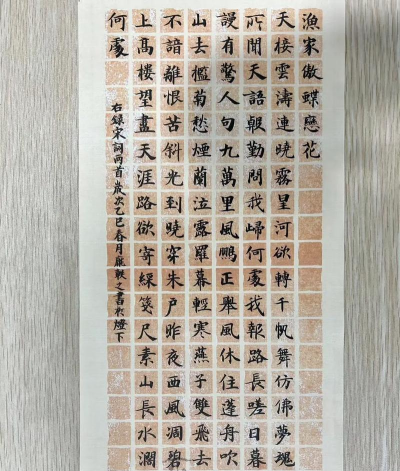 漁家傲蝶戀花
天接雲濤連曉霧星河欲轉千帆舞仿佛夢魂
所聞天語殷勤問我歸何處我報路長嗟日暮
謾有驚人句九萬里風鵬正舉風休住蓬舟吹
山去檻菊愁煙蘭泣露羅幕輕寒燕子雙飛去
不諳離恨苦斜光到曉穿朱戶昨夜西風凋碧
上高樓望盡天涯路欲寄綵箋尺素山長水濶
何處
右錄宋詞兩首歲次乙巳春月之書於燈下